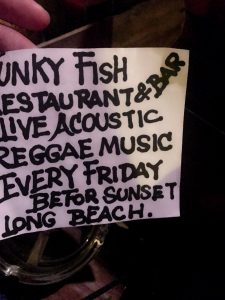 UNKY FISH
RESTAURANT & BAR
LIVE ACOUSTIC
REGGAE MUSIC
EVERY FRIDAY
BEFOR SUNSET
LONG BEACH.